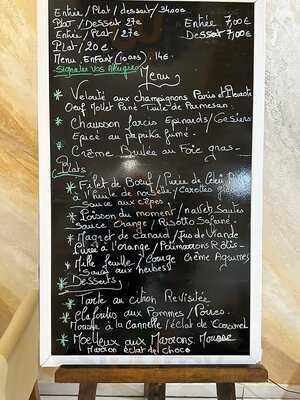 Entrée / Plat / dessert / 34,00€
Plat / Dessert 27€ Entrée 7,00€
Entrée / Plat / 27€ Dessert 7,00€
Plat / 20€.
Menu. Enfant (10 ans). 14€.
Signaler vos Allergies
Menu
* Velouté aux champignons Paris et
Oeuf Mollet Pané Tuile de Parmesan.
* Chausson farcis Epinards / Gesiers
Epice au paprika fumé.
* Crème Brulée au Foie gras
Plats
* Filet de Bœuf / Purée de Céleri
à l'huile de noisette / Carottes
Sauce aux cèpes
* Poisson du moment / navets Sautés
Sauce Orange / Risotto Safrané.
* Magret de Canard / Jus de Viande
Purée à l'orange / Potimarrons Rôtis
* Mille feuille / Courge Crème Agrumes
Sauce aux herbes
* Desserts
* Tarte au citron Revisitée
* Clafoutis aux Pommes / Poires.
Mousse à la Cannelle / éclat de Caramel
* Moelleux aux Marrons Mousse
Marron éclat de choco